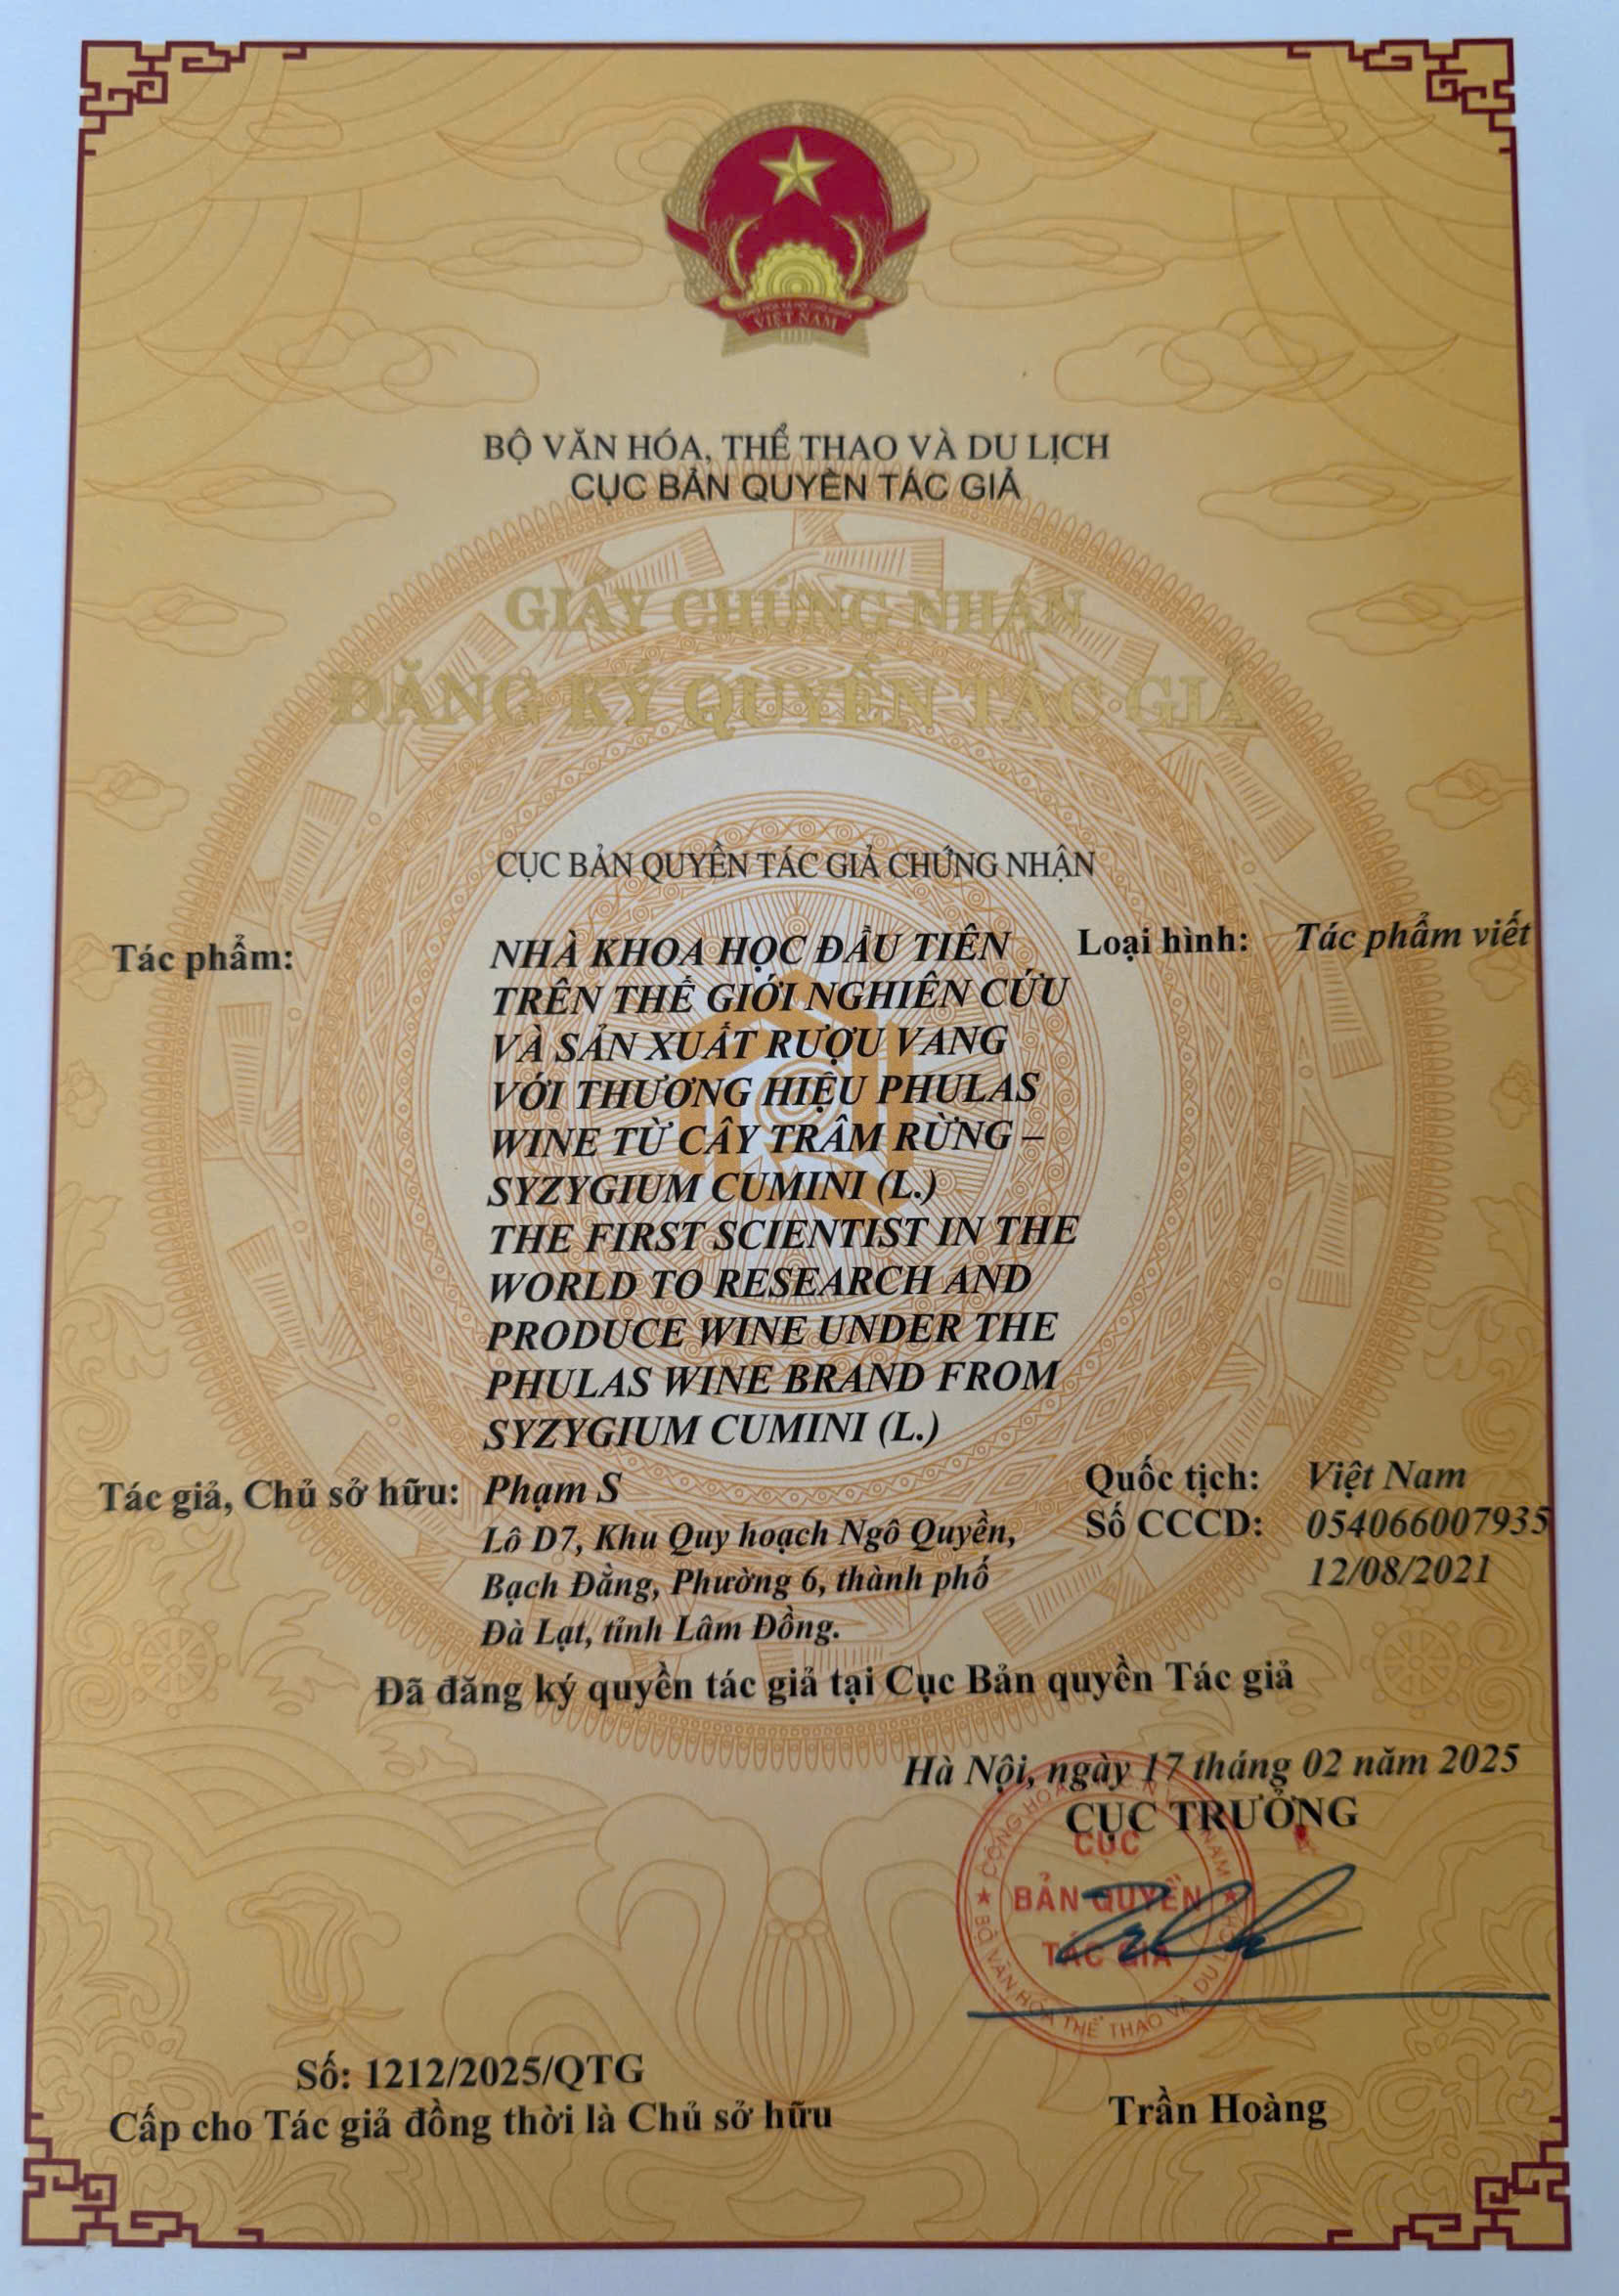 VIỆT NAM
BỘ VĂN HÓA, THỂ THAO VÀ DU LỊCH
CỤC BẢN QUYỀN TÁC GIẢ
GIẤY CHỨNG NHẬN
ĐĂNG KÝ QUYỀN TÁC GIẢ
CỤC BẢN QUYỀN TÁC GIẢ CHỨNG NHẬN
Tác phẩm: NHÀ KHOA HỌC ĐẦU TIÊN Loại hình: Tác phẩm viết
TRÊN THẾ GIỚI NGHIÊN CỨU
VÀ SẢN XUẤT RƯỢU VANG
VỚI THƯƠNG HIỆU PHULAS
WINE TỪ CÂY TRÂM RỪNG –
SYZYGIUM CUMINI (L.)
THE FIRST SCIENTIST IN THE
WORLD TO RESEARCH AND
PRODUCE WINE UNDER THE
PHULAS WINE BRAND FROM
SYZYGIUM CUMINI (L.)
Tác giả, Chủ sở hữu: Phạm S Quốc tịch: Việt Nam
Lô D7, Khu Quy hoạch Ngô Quyền, Số CCCD: 054066007935
Bạch Đằng, Phường 6, thành phố 12/08/2021
Đà Lạt, tỉnh Lâm Đồng.
Đã đăng ký quyền tác giả tại Cục Bản quyền Tác giả
Hà Nội, ngày 17 tháng 02 năm 2025
CỤC TRƯỞNG
CỤC
BẢN QUYỀN
TÁC GIẢ
BỘ VĂN HÓA THỂ THAO VÀ DU
Số: 1212/2025/QTG
Cấp cho Tác giả đồng thời là Chủ sở hữu
Trần Hoàng